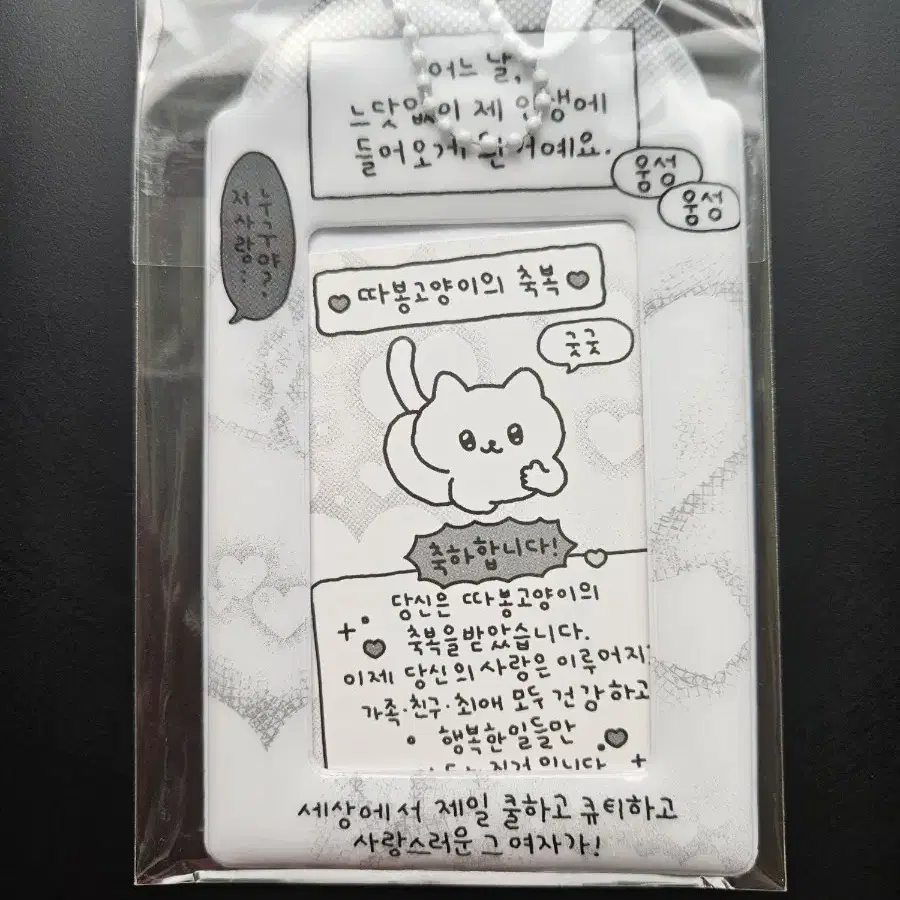 어느 날,
느닷없이 제 인생에
들어오게 된 거예요.
웅성
웅성
저 사람…
누구야?
따봉고양이의 축복
굿굿
축하합니다!
당신은 따봉고양이의
축복을 받았습니다.
이제 당신의 사랑은 이루어지
가족·친구·최애 모두 건강하고
행복한 일들만
세상에서 제일 쿨하고 큐티하고
사랑스러운 그 여자가!